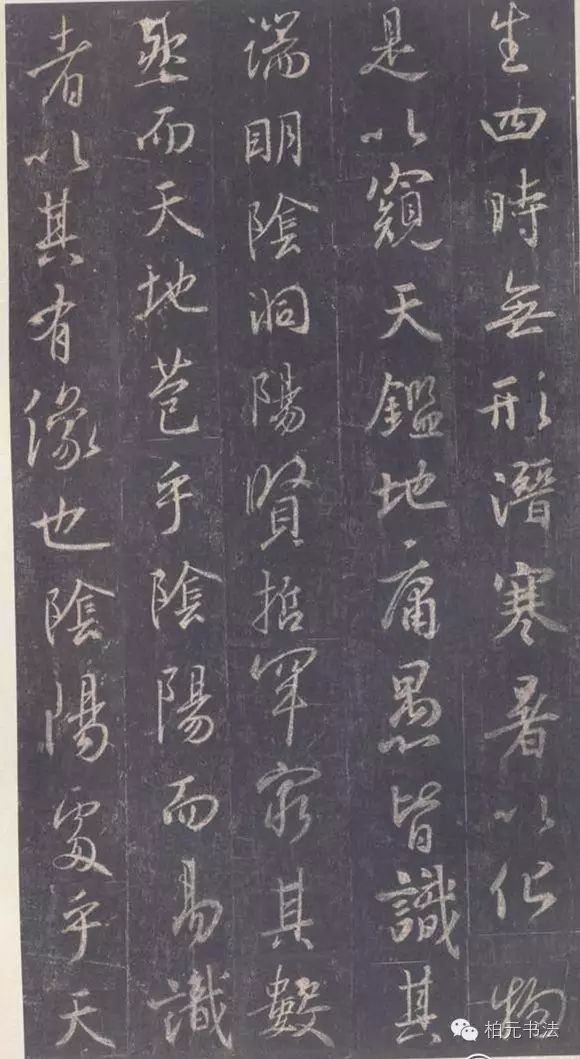 生四時無形潛寒暑以化物
是以窺天鑑地庸愚皆識其
端明陰洞陽賢哲罕窮其數
然而天地苞乎陰陽而易識
者以其有像也陰陽處乎天
柏元书法